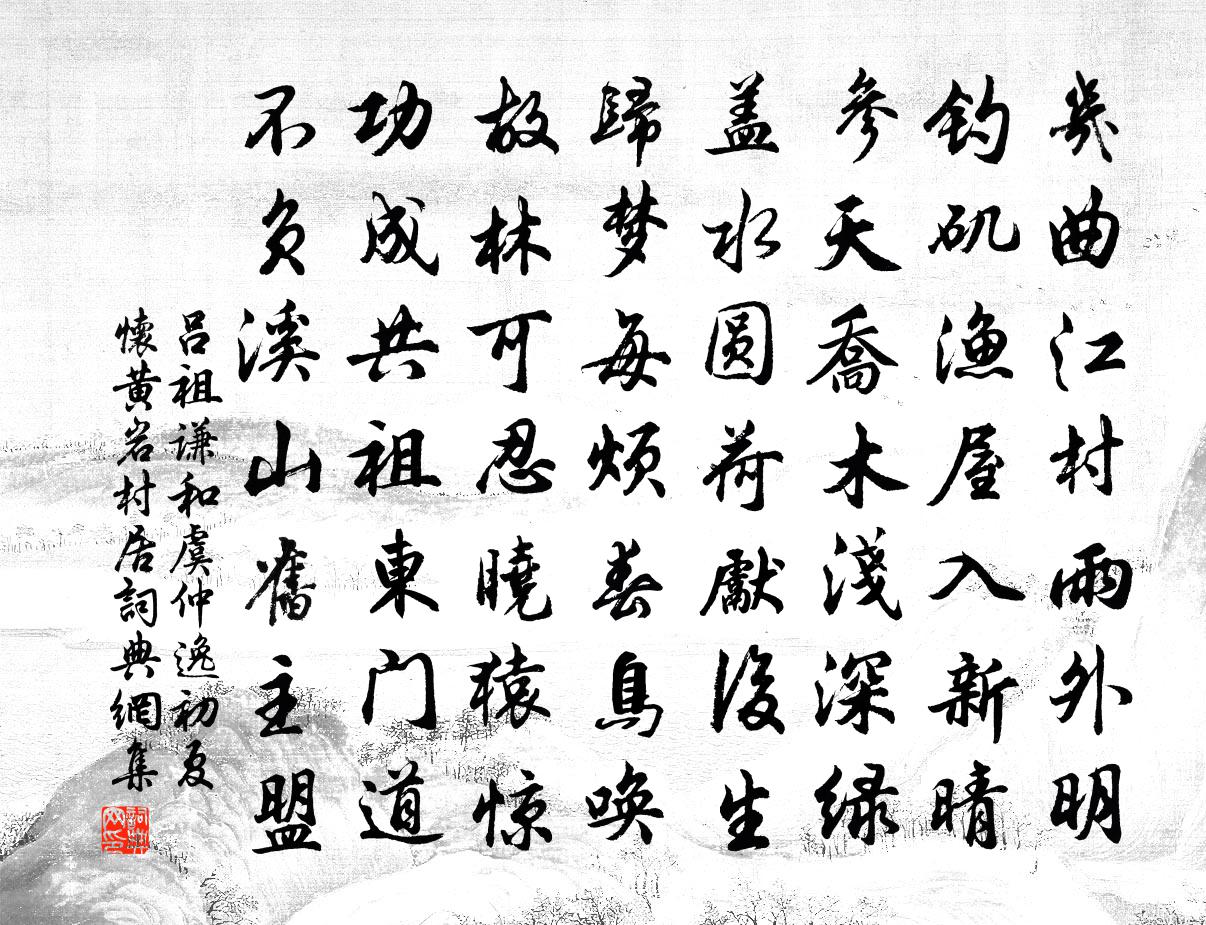 幾曲江村雨外明
钓矶渔屋入新晴
參天喬木淺深绿
盖水圆荷獻後生
歸梦每烦春鳥唤
故林可忍曉猿惊
功成共祖東门道
不负溪山舊主盟
吕祖谦和虞仲逸初夏
懷黄岩村居詞典網集